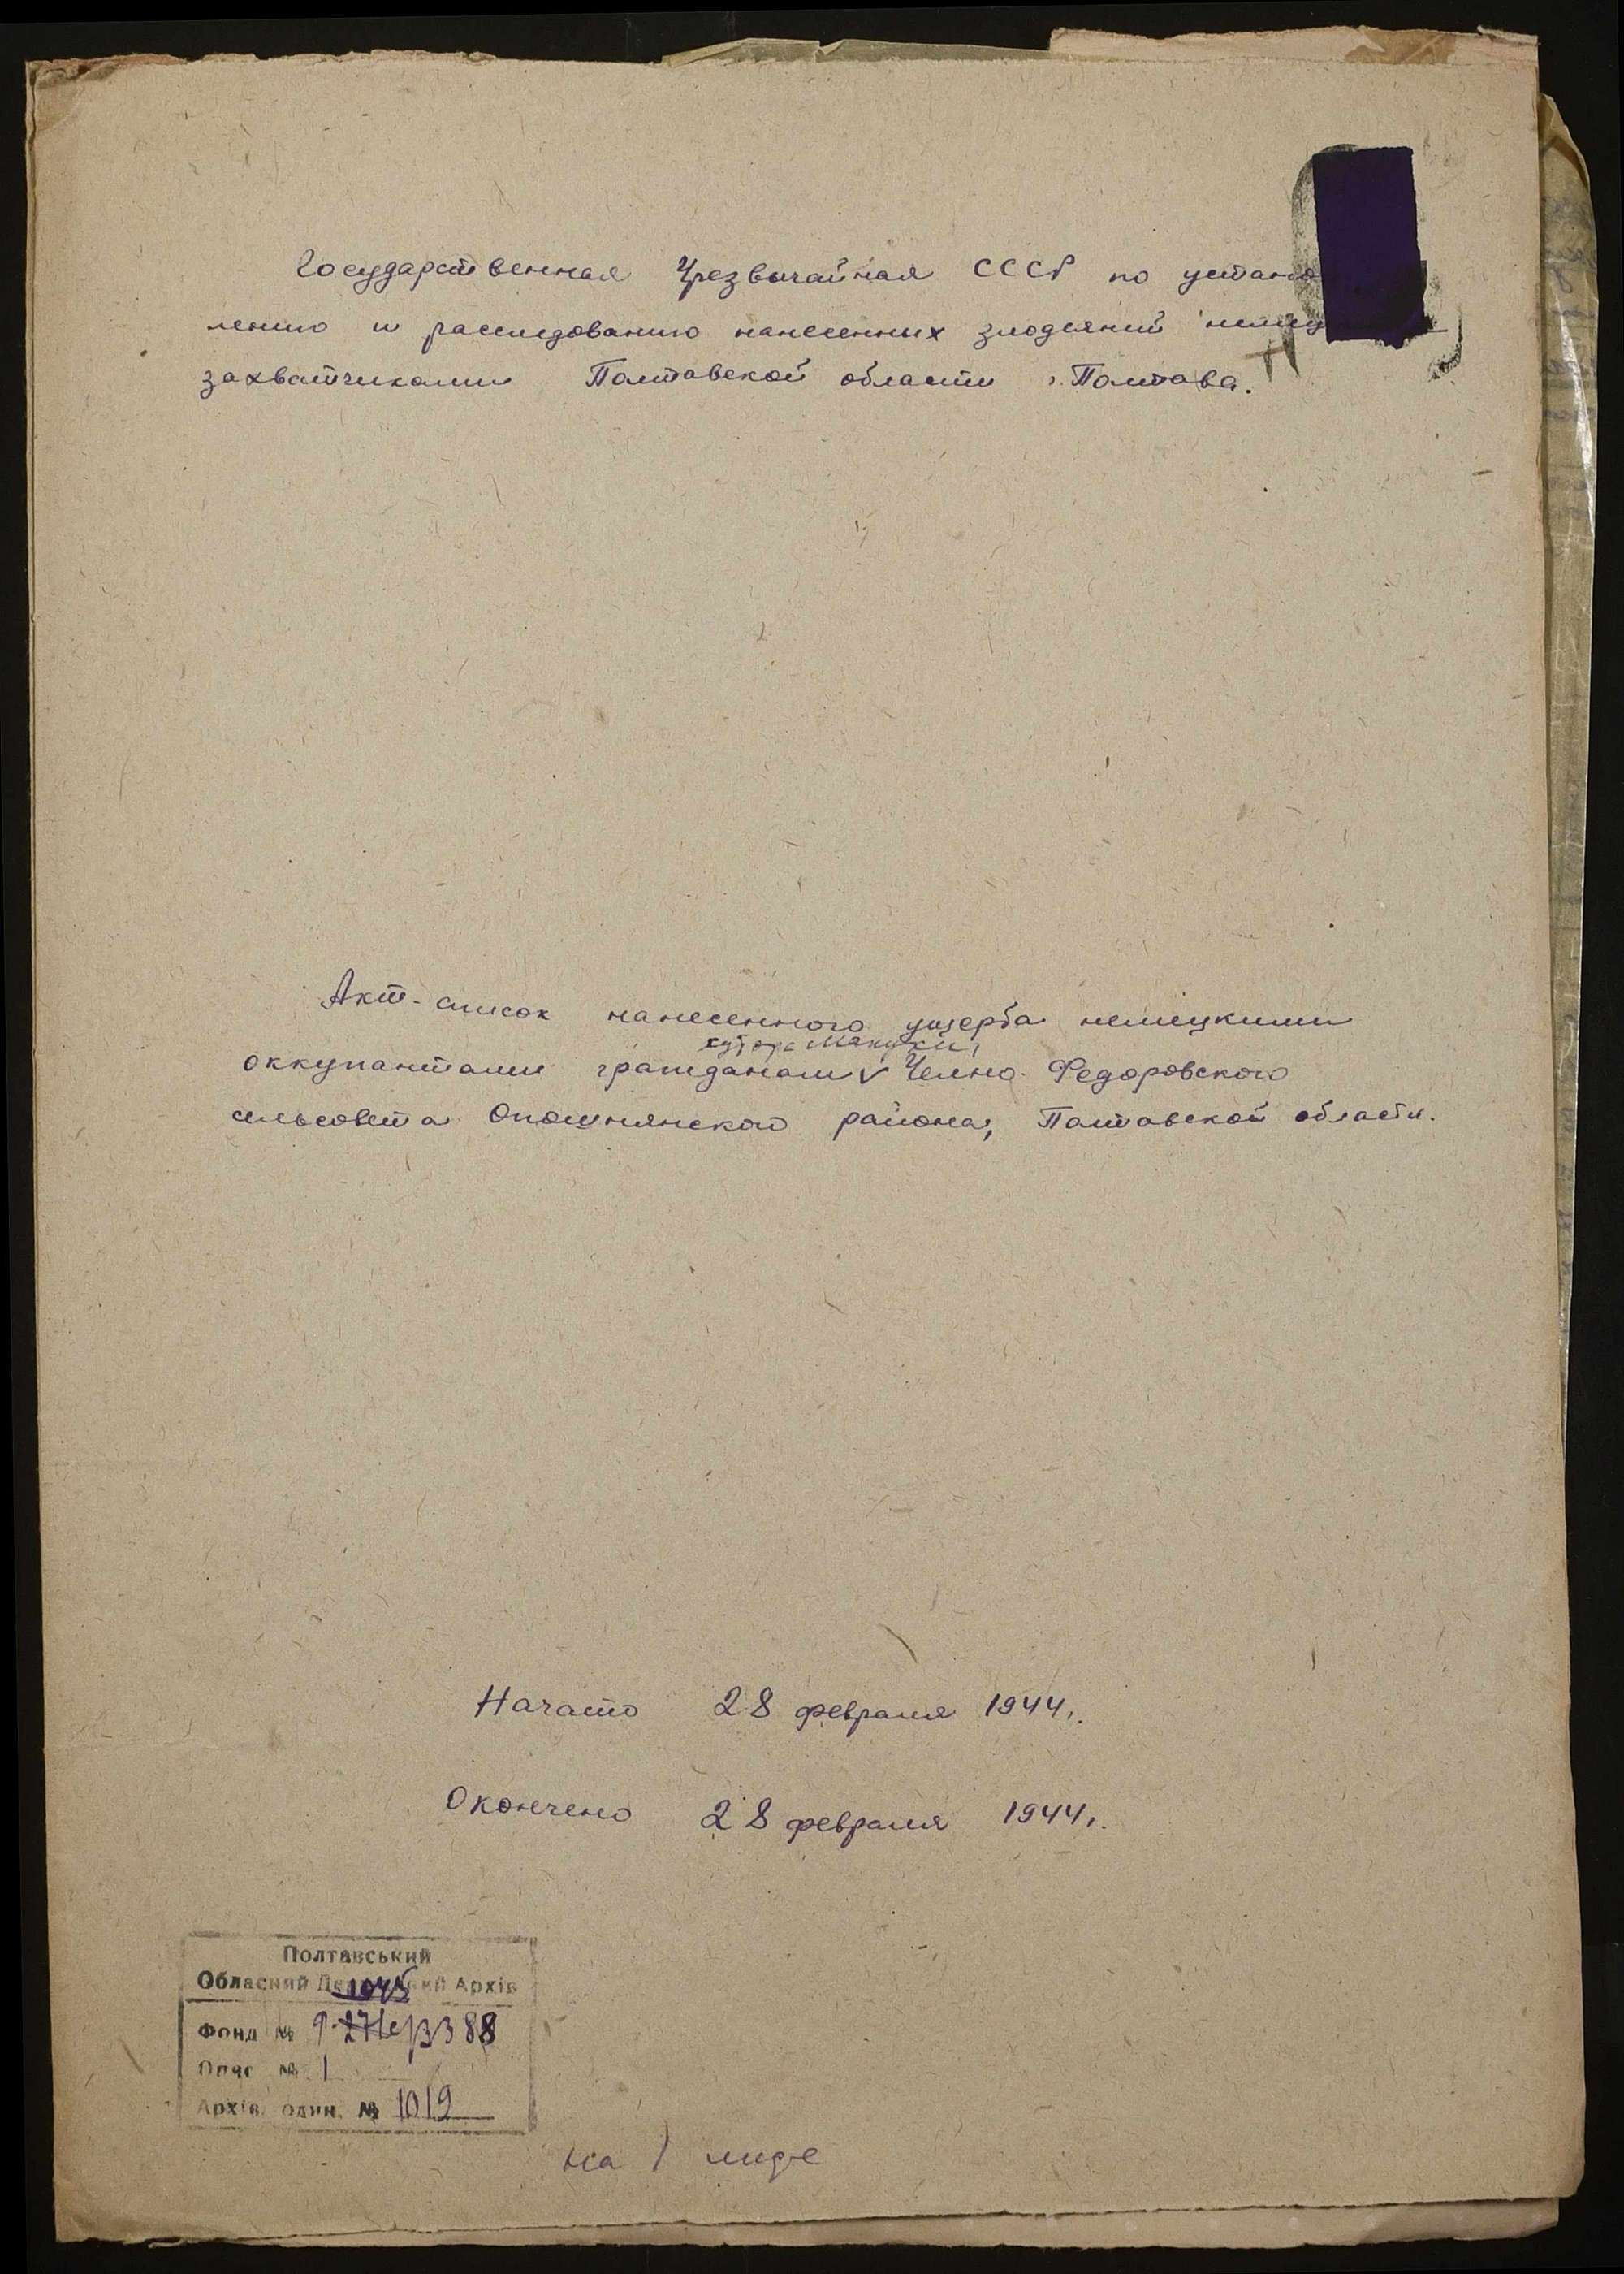 Государственная Чрезвычайная СССР по устано
лению и расследованию нанесенных злодеяний немец
захватчиками Полтавской области г. Полтава.
Акт-список нанесенного ущерба немецкими
хутора Макухи,
оккупантами гражданам V Челно-Федоровского
сельсовета Опошнянского района, Полтавской области.
Начато 28 февраля 1944г.
Окончено 28 февраля 1944г.
Полтавський
Обласний Державний Архів
1045
Фонд № Р 3388
Опис № 1
Архів. один. № 1019
на 1 лиде